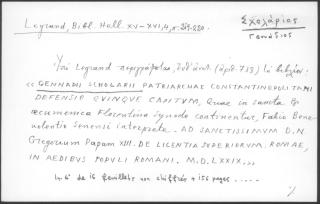 Legrand, Bibl. Hell. XV-XVI, 4, σ. 219-220.
Σχολάριος
Γεννάδιος
Ὑπὸ Legrand περιγράφεται, ὑπ' ἀριθ. (ἀρ. 713) τὸ βιβλίον:
«GENNADII SCHOLARII PATRIARCHAE CONSTANTINOPOLITANI
DEFENSIO QUINQUE CAPITUM, Quae in sancta &
œcumenica Florentina synodo continentur, Fabio Bene-
volentio Senensi interprete. AD SANCTISSIMUM D.N.
Gregorium Papam XIII. DE LICENTIA SUPERIORUM. ROMAE,
IN AEDIBUS POPULI ROMANI. M.D.LXXIX.»
In 4° de 16 feuillets non chiffrés + 156 pages